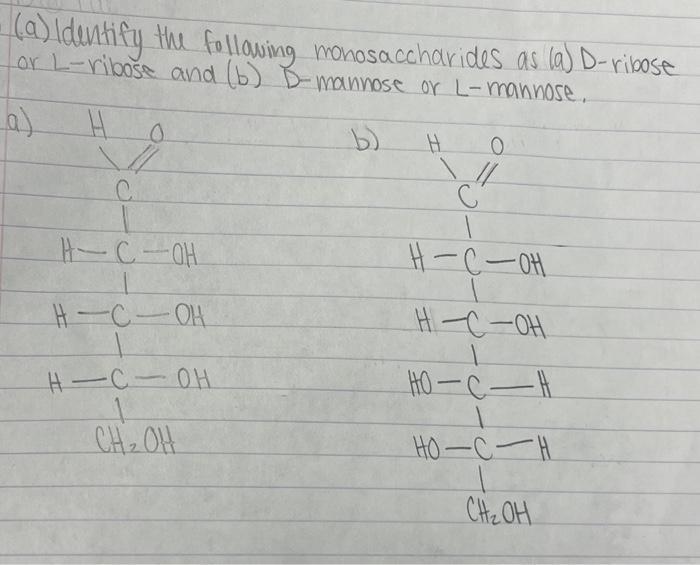 (a) Identify the following monosaccharides as (a) D-ribose
or L-ribose and (b) D-mannose or L-mannose.
a)
H O
C
H—C—OH
H—C—OH
H—C—OH
CH₂OH
b)
H O
C
H—C—OH
H—C—OH
HO—C—H
HO—C—H
CH₂OH